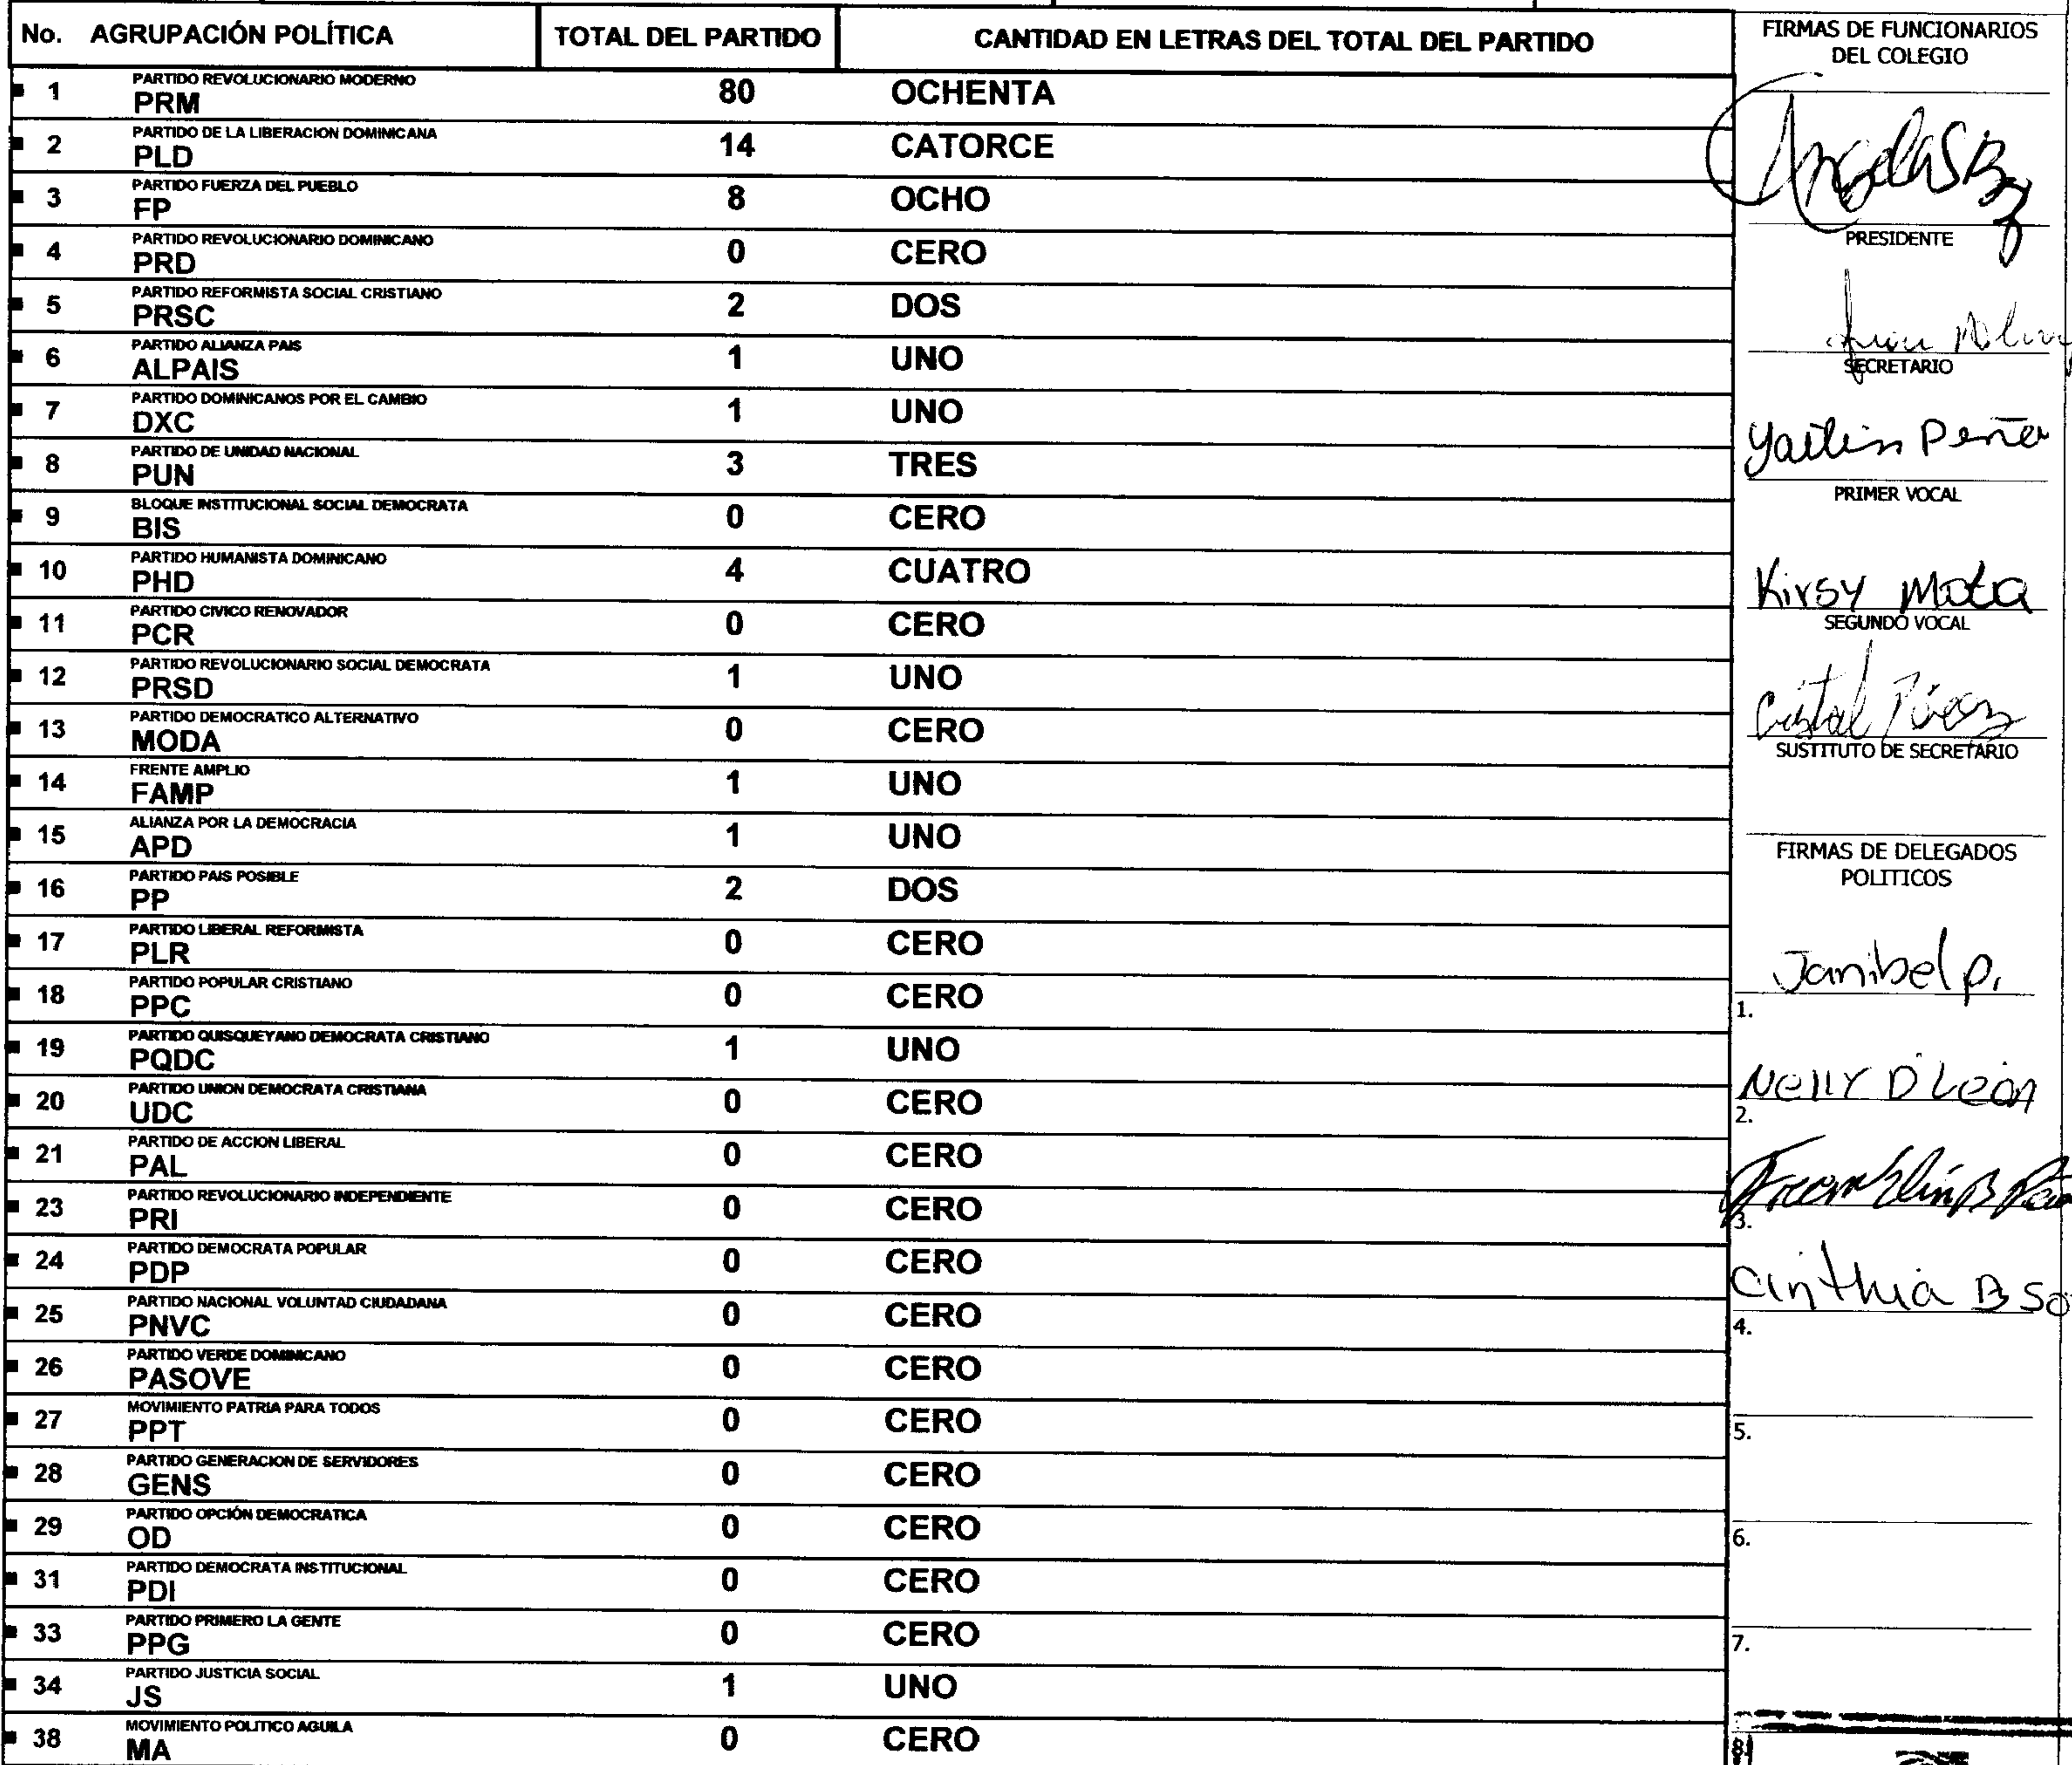 No. AGRUPACIÓN POLÍTICA TOTAL DEL PARTIDO CANTIDAD EN LETRAS DEL TOTAL DEL PARTIDO
PARTIDO REVOLUCIONARIO MODERNO
1 PRM 80 OCHENTA
PARTIDO DE LA LIBERACION DOMINICANA
2 PLD 14 CATORCE
PARTIDO FUERZA DEL PUEBLO
3 FP 8 OCHO
PARTIDO REVOLUCIONARIO DOMINICANO
4 PRD 0 CERO
PARTIDO REFORMISTA SOCIAL CRISTIANO
5 PRSC 2 DOS
PARTIDO ALIANZA PAIS
6 ALPAIS 1 UNO
PARTIDO DOMINICANOS POR EL CAMBIO
7 DXC 1 UNO
PARTIDO DE UNIDAD NACIONAL
8 PUN 3 TRES
BLOQUE INSTITUCIONAL SOCIAL DEMOCRATA
9 BIS 0 CERO
PARTIDO HUMANISTA DOMINICANO
10 PHD 4 CUATRO
PARTIDO CIVICO RENOVADOR
11 PCR 0 CERO
PARTIDO REVOLUCIONARIO SOCIAL DEMOCRATA
12 PRSD 1 UNO
PARTIDO DEMOCRATICO ALTERNATIVO
13 MODA 0 CERO
FRENTE AMPLIO
14 FAMP 1 UNO
ALIANZA POR LA DEMOCRACIA
15 APD 1 UNO
PARTIDO PAIS POSIBLE
16 PP 2 DOS
PARTIDO LIBERAL REFORMISTA
17 PLR 0 CERO
PARTIDO POPULAR CRISTIANO
18 PPC 0 CERO
PARTIDO QUISQUEYANO DEMOCRATA CRISTIANO
19 PQDC 1 UNO
PARTIDO UNION DEMOCRATA CRISTIANA
20 UDC 0 CERO
PARTIDO DE ACCION LIBERAL
21 PAL 0 CERO
PARTIDO REVOLUCIONARIO INDEPENDIENTE
23 PRI 0 CERO
PARTIDO DEMOCRATA POPULAR
24 PDP 0 CERO
PARTIDO NACIONAL VOLUNTAD CIUDADANA
25 PNVC 0 CERO
PARTIDO VERDE DOMINICANO
26 PASOVE 0 CERO
MOVIMIENTO PATRIA PARA TODOS
27 PPT 0 CERO
PARTIDO GENERACION DE SERVIDORES
28 GENS 0 CERO
PARTIDO OPCIÓN DEMOCRATICA
29 OD 0 CERO
PARTIDO DEMOCRATA INSTITUCIONAL
31 PDI 0 CERO
PARTIDO PRIMERO LA GENTE
33 PPG 0 CERO
PARTIDO JUSTICIA SOCIAL
34 JS 1 UNO
MOVIMIENTO POLITICO AGUILA
38 MA 0 CERO
FIRMAS DE FUNCIONARIOS
DEL COLEGIO
PRESIDENTE
SECRETARIO
Yailin Peña
PRIMER VOCAL
Kirsy Mota
SEGUNDO VOCAL
Cristal
SUSTITUTO DE SECRETARIO
FIRMAS DE DELEGADOS
POLITICOS
Janibel P.
1.
Nelly D Leon
2.
Franklin B
3.
Cinthia B So
4.
5.
6.
7.
8.